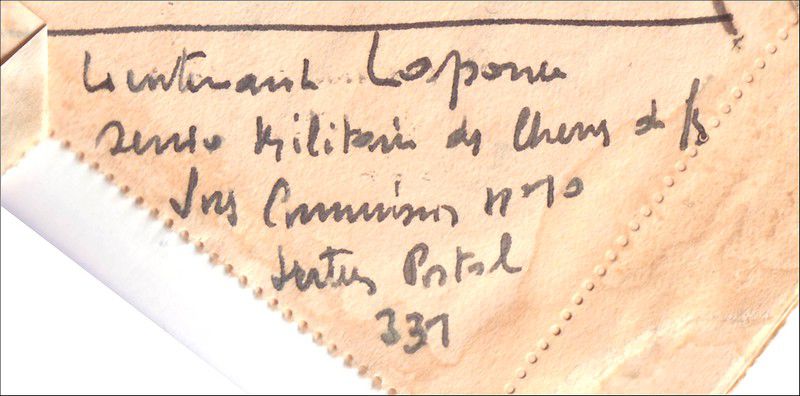 Lieutenant Laporte
Service Militaire des Chems de fer
Sous Commission n° 10
Secteur Postal
331